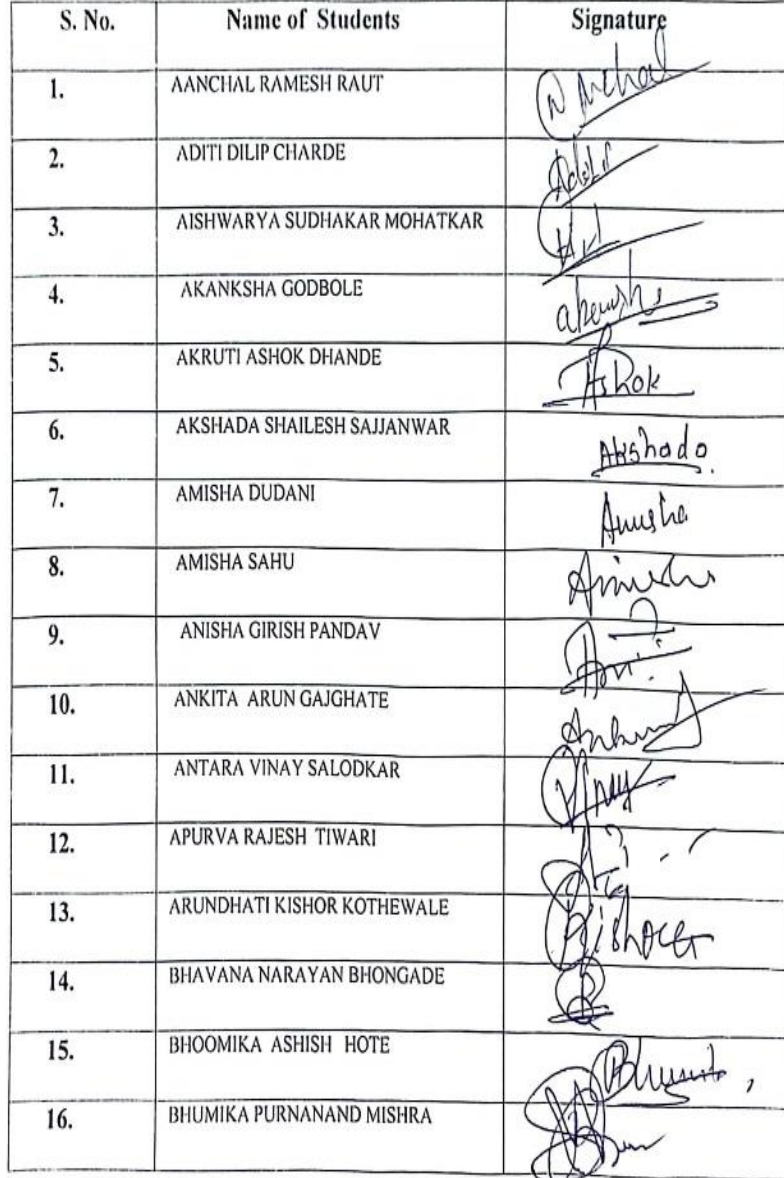 S. No. Name of Students Signature
1. AANCHAL RAMESH RAUT
2. ADITI DILIP CHARDE
3. AISHWARYA SUDHAKAR MOHATKAR
4. AKANKSHA GODBOLE
5. AKRUTI ASHOK DHANDE Ashok
6. AKSHADA SHAILESH SAJJANWAR Akshada
7. AMISHA DUDANI
8. AMISHA SAHU
9. ANISHA GIRISH PANDAV
10. ANKITA ARUN GAJGHATE
11. ANTARA VINAY SALODKAR
12. APURVA RAJESH TIWARI
13. ARUNDHATI KISHOR KOTHEWALE
14. BHAVANA NARAYAN BHONGADE
15. BHOOMIKA ASHISH HOTE
16. BHUMIKA PURNANAND MISHRA